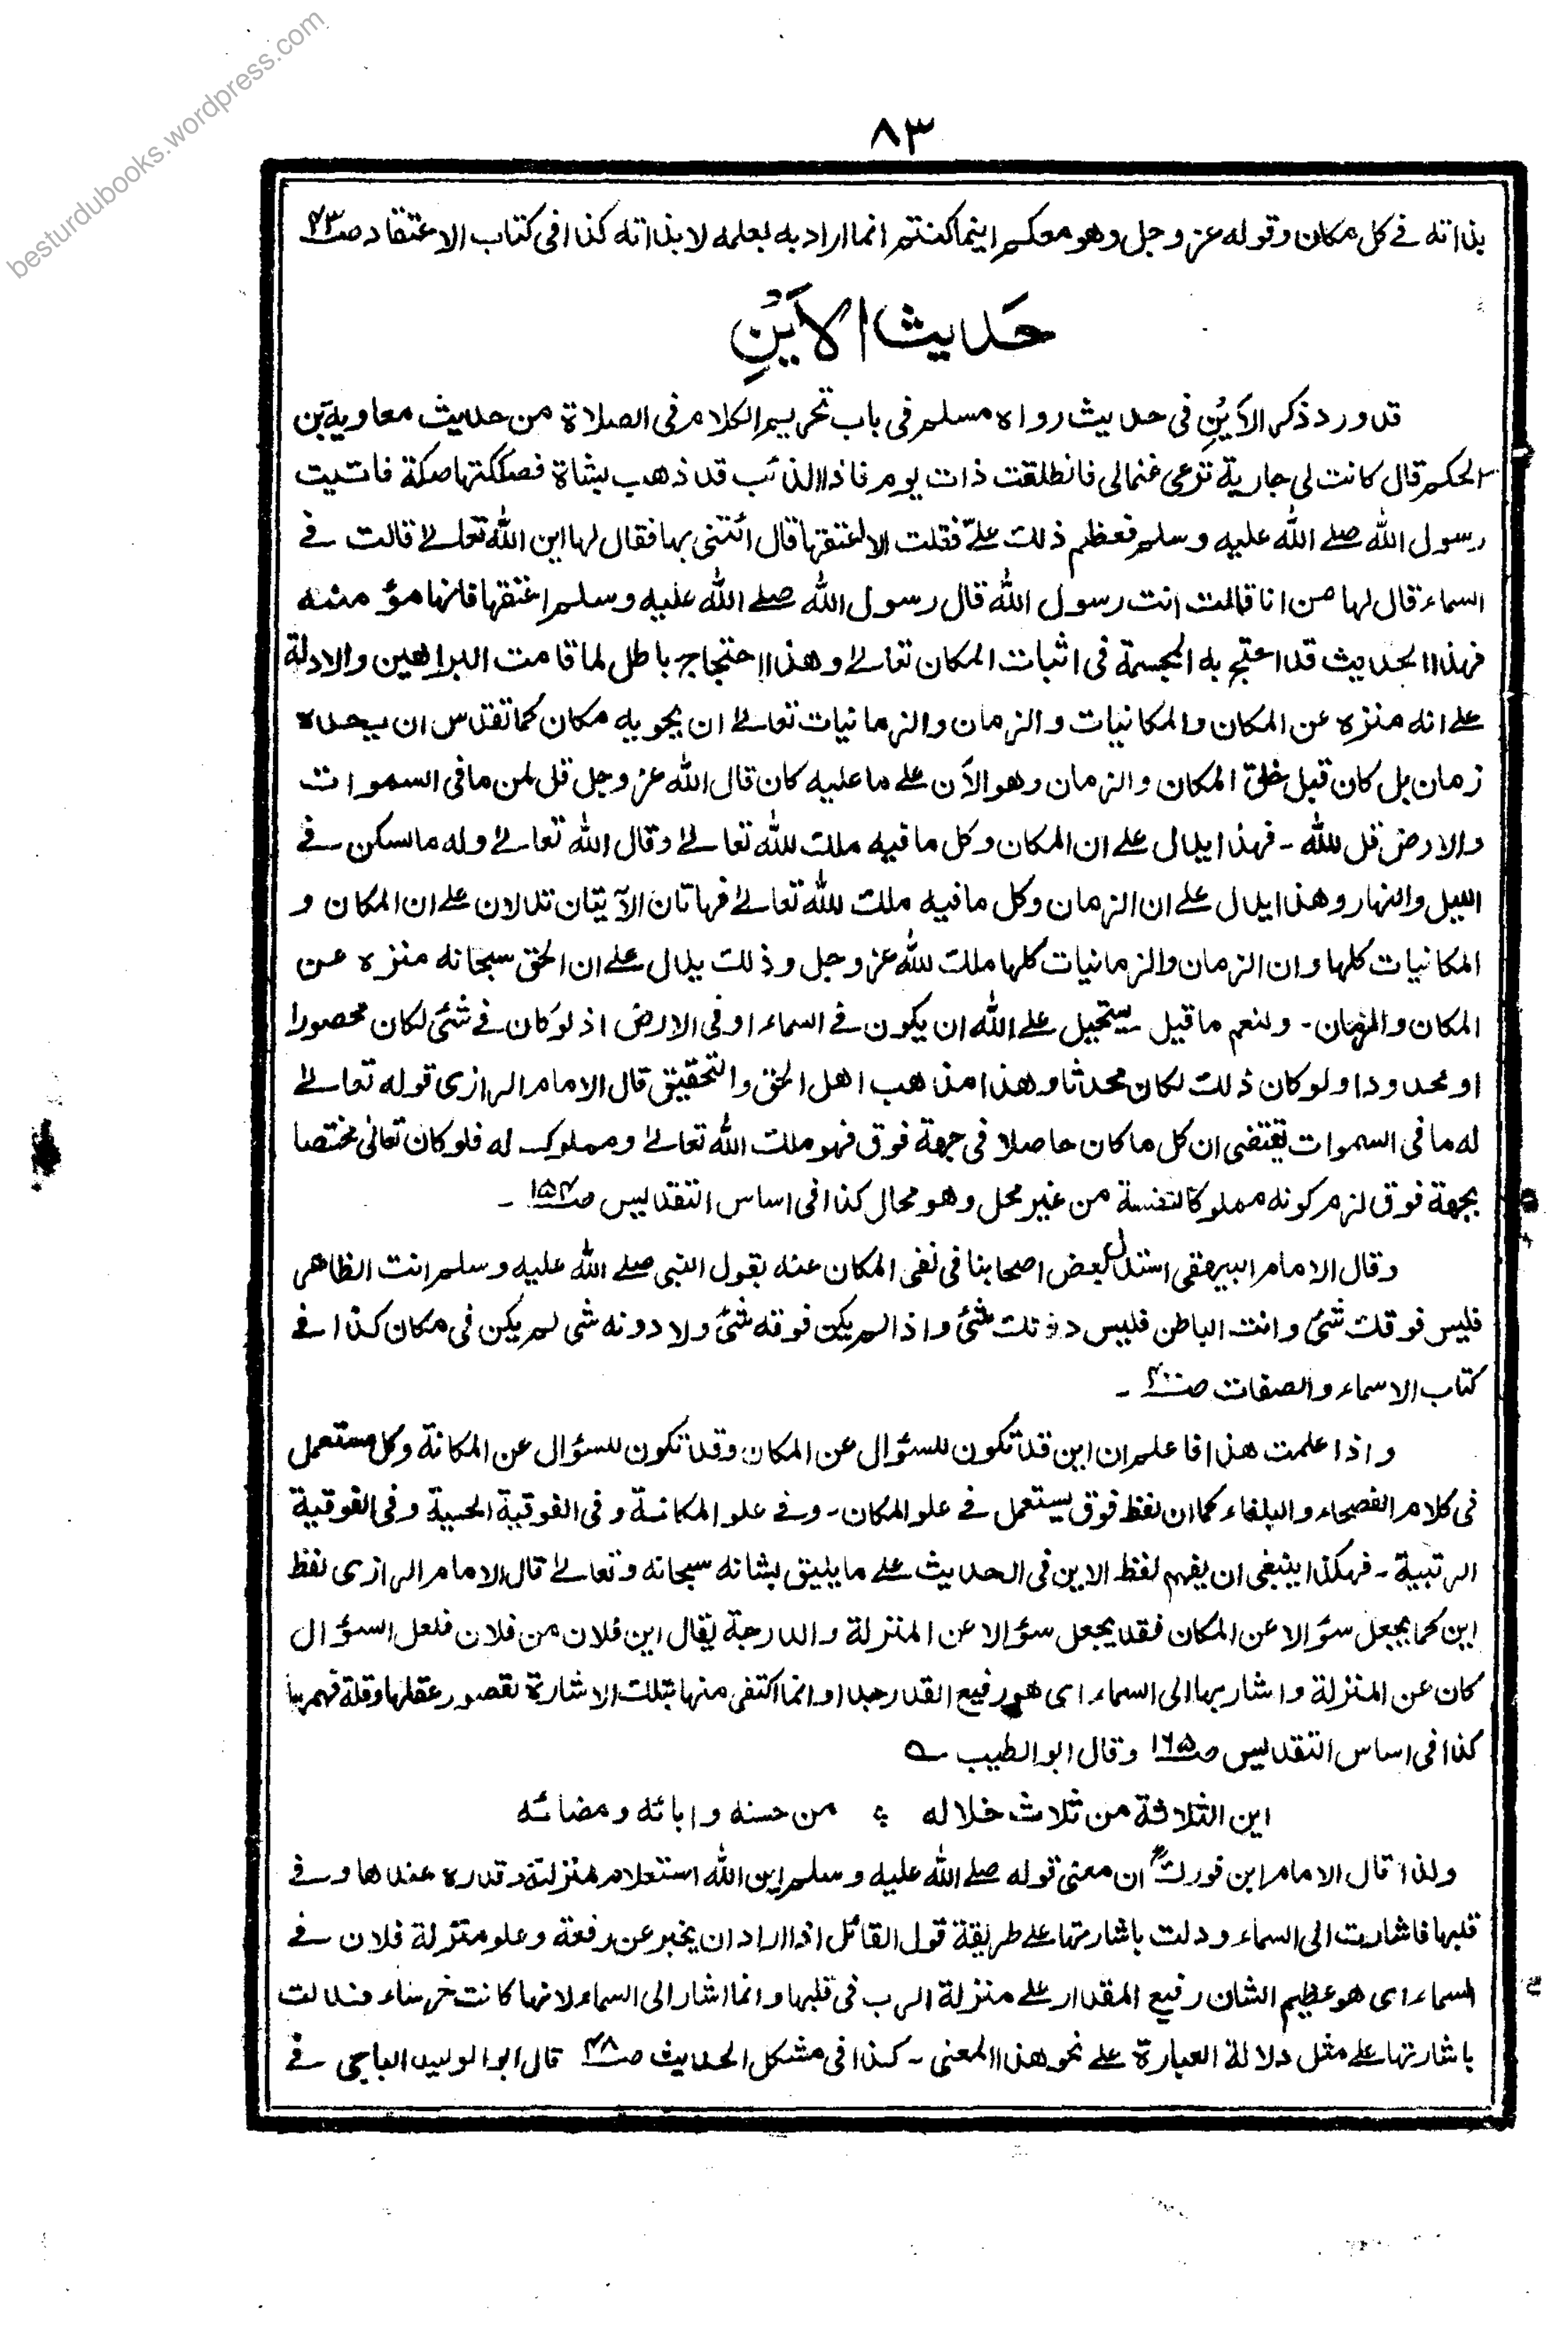 besturdubooks.wordpress.com
٨٣
بذاته فے كل مكان وقوله عز وجل وهو معكم اينما كنتم انما اراد به بعلمه لا بذاته كذا فى كتاب الاعتقاد صـ٤٣
حَديث الاَيْنِ
قد ورد ذكر الاَيْنِ فى حديث رواه مسلم فى باب تحريم الكلام فى الصلاة من حديث معاوية بن
الحكم قال كانت لى جارية ترعى غنمالى فانطلقت ذات يوم فاذا الذئب قد ذهب بشاة فصككتها صكة فاتيت
رسول الله صلے الله عليه وسلم فعظم ذلك علىّ فقلت الا اعتقها قال ائتنى بها فقال لها اين الله تعالےٰ قالت فے
السماء قال لها من انا قالت انت رسول الله قال رسول الله صلے الله عليه وسلم اعتقها فانها مؤمنه
فهذا الحديث قد احتج به المجسمة فى اثبات المكان تعالےٰ وهذا احتجاج باطل لما قامت البراهين والادلة
علے انه منزه عن المكان والمكانيات والزمان والزمانيات تعالےٰ ان يحويه مكان كما تقدس ان يحده
زمان بل كان قبل خلق المكان والزمان وهو الآن علے ما عليه كان قال الله عز وجل قل لمن ما فى السموات
والارض قل لله - فهذا يدل علے ان المكان وكل ما فيه ملك لله تعالےٰ وقال الله تعالےٰ وله ما سكن فے
الليل والنهار وهذا يدل علے ان الزمان وكل ما فيه ملك لله تعالےٰ فهاتان الآيتان تدلان علے ان المكان و
المكانيات كلها وان الزمان والزمانيات كلها ملك لله عز وجل وذلك يدل علے ان الحق سبحانه منزه عن
المكان والزمان - ولنعم ما قيل يستحيل علے الله ان يكون فے السماء او فى الارض اذ لو كان فے شئ لكان محصورا
او محدودا ولو كان ذلك لكان محدثا وهذا مذهب اهل الحق والتحقيق قال الامام الرازى قوله تعالےٰ
له ما فى السموات يقتضى ان كل ما كان حاصلا فى جهة فوق فهو ملك الله تعالےٰ ومملوك له فلو كان تعالى مختصا
بجهة فوق لزم كونه مملوكا لنفسه من غير محل وهو محال كذا فى اساس التقديس صـ١٥٤ -
وقال الامام البيهقى استدل بعض اصحابنا فى نفى المكان عنه بقول النبى صلے الله عليه وسلم انت الظاهر
فليس فوقك شئ وانت الباطن فليس دونك شئ واذا لم يكن فوقه شئ ولا دونه شى لم يكن فى مكان كذا فے
كتاب الاسماء والصفات صـ٤٠٠ -
واذا علمت هذا فاعلم ان اين قد تكون للسؤال عن المكان وقد تكون للسؤال عن المكانة وكل مستعمل
فى كلام الفصحاء والبلغاء كما ان لفظ فوق يستعمل فے علو المكان - وفے علو المكانة وفى الفوقية الحسية وفى الفوقية
الرتبية - فهكذا ينبغى ان يفهم لفظ الاين فى الحديث علے ما يليق بشانه سبحانه وتعالےٰ قال الامام الرازى لفظ
اين كما يجعل سؤالا عن المكان فقد يجعل سؤالا عن المنزلة والدرجة يقال اين فلان من فلان فلعل السؤال
كان عن المنزلة واشار بها الى السماء اى هو رفيع القدر جدا وانما اكتفى منها بتلك الاشارة لقصور عقلها وقلة فهمها
كذا فى اساس التقديس صـ١٦٥ وقال ابو الطيب ؎
اين الثلاثة من ثلاث خلاله ؛ من حسنه وابائه ومضائه
ولذا قال الامام ابن فورك ان معنى قوله صلے الله عليه وسلم اين الله استعلام لمنزلته وقدره عندها وفے
قلبها فاشارت الى السماء ودلت باشارتها على طريقة قول القائل اذا اراد ان يخبر عن رفعة وعلو منزلة فلان فے
السماء اى هو عظيم الشان رفيع المقدار علے منزلة الرب فى قلبها وانما اشار الى السماء لانها كانت خرساء فدلت
باشارتها علے مثل دلالة العبارة علے نحو هذا المعنى - كذا فى مشكل الحديث صـ٤٨ قال ابو الوليد الباجى فے